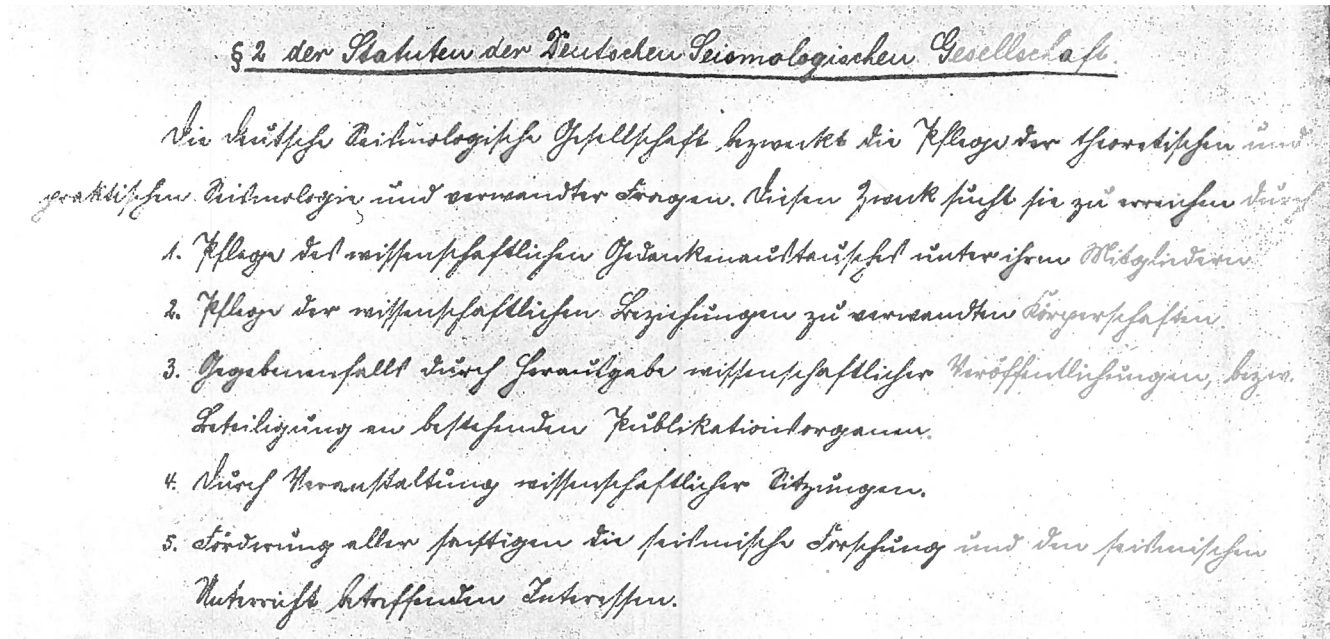 § 2 der Statuten der Deutschen Seismologischen Gesellschaft.
Die deutsche Seismologische Gesellschaft bezweckt die Pflege der theoretischen und
praktischen Seismologie und verwandter Fragen. Diesen Zweck sucht sie zu erreichen durch
1. Pflege des wissenschaftlichen Gedankenaustausches unter ihren Mitgliedern
2. Pflege der wissenschaftlichen Beziehungen zu verwandten Körperschaften
3. Gegebenenfalls durch Herausgabe wissenschaftlicher Veröffentlichungen, bezw.
Beteiligung an bestehenden Publikationsorganen.
4. Durch Veranstaltung wissenschaftlicher Sitzungen.
5. Förderung aller sonstigen die seismische Forschung und den seismischen
Unterricht betreffenden Interessen.